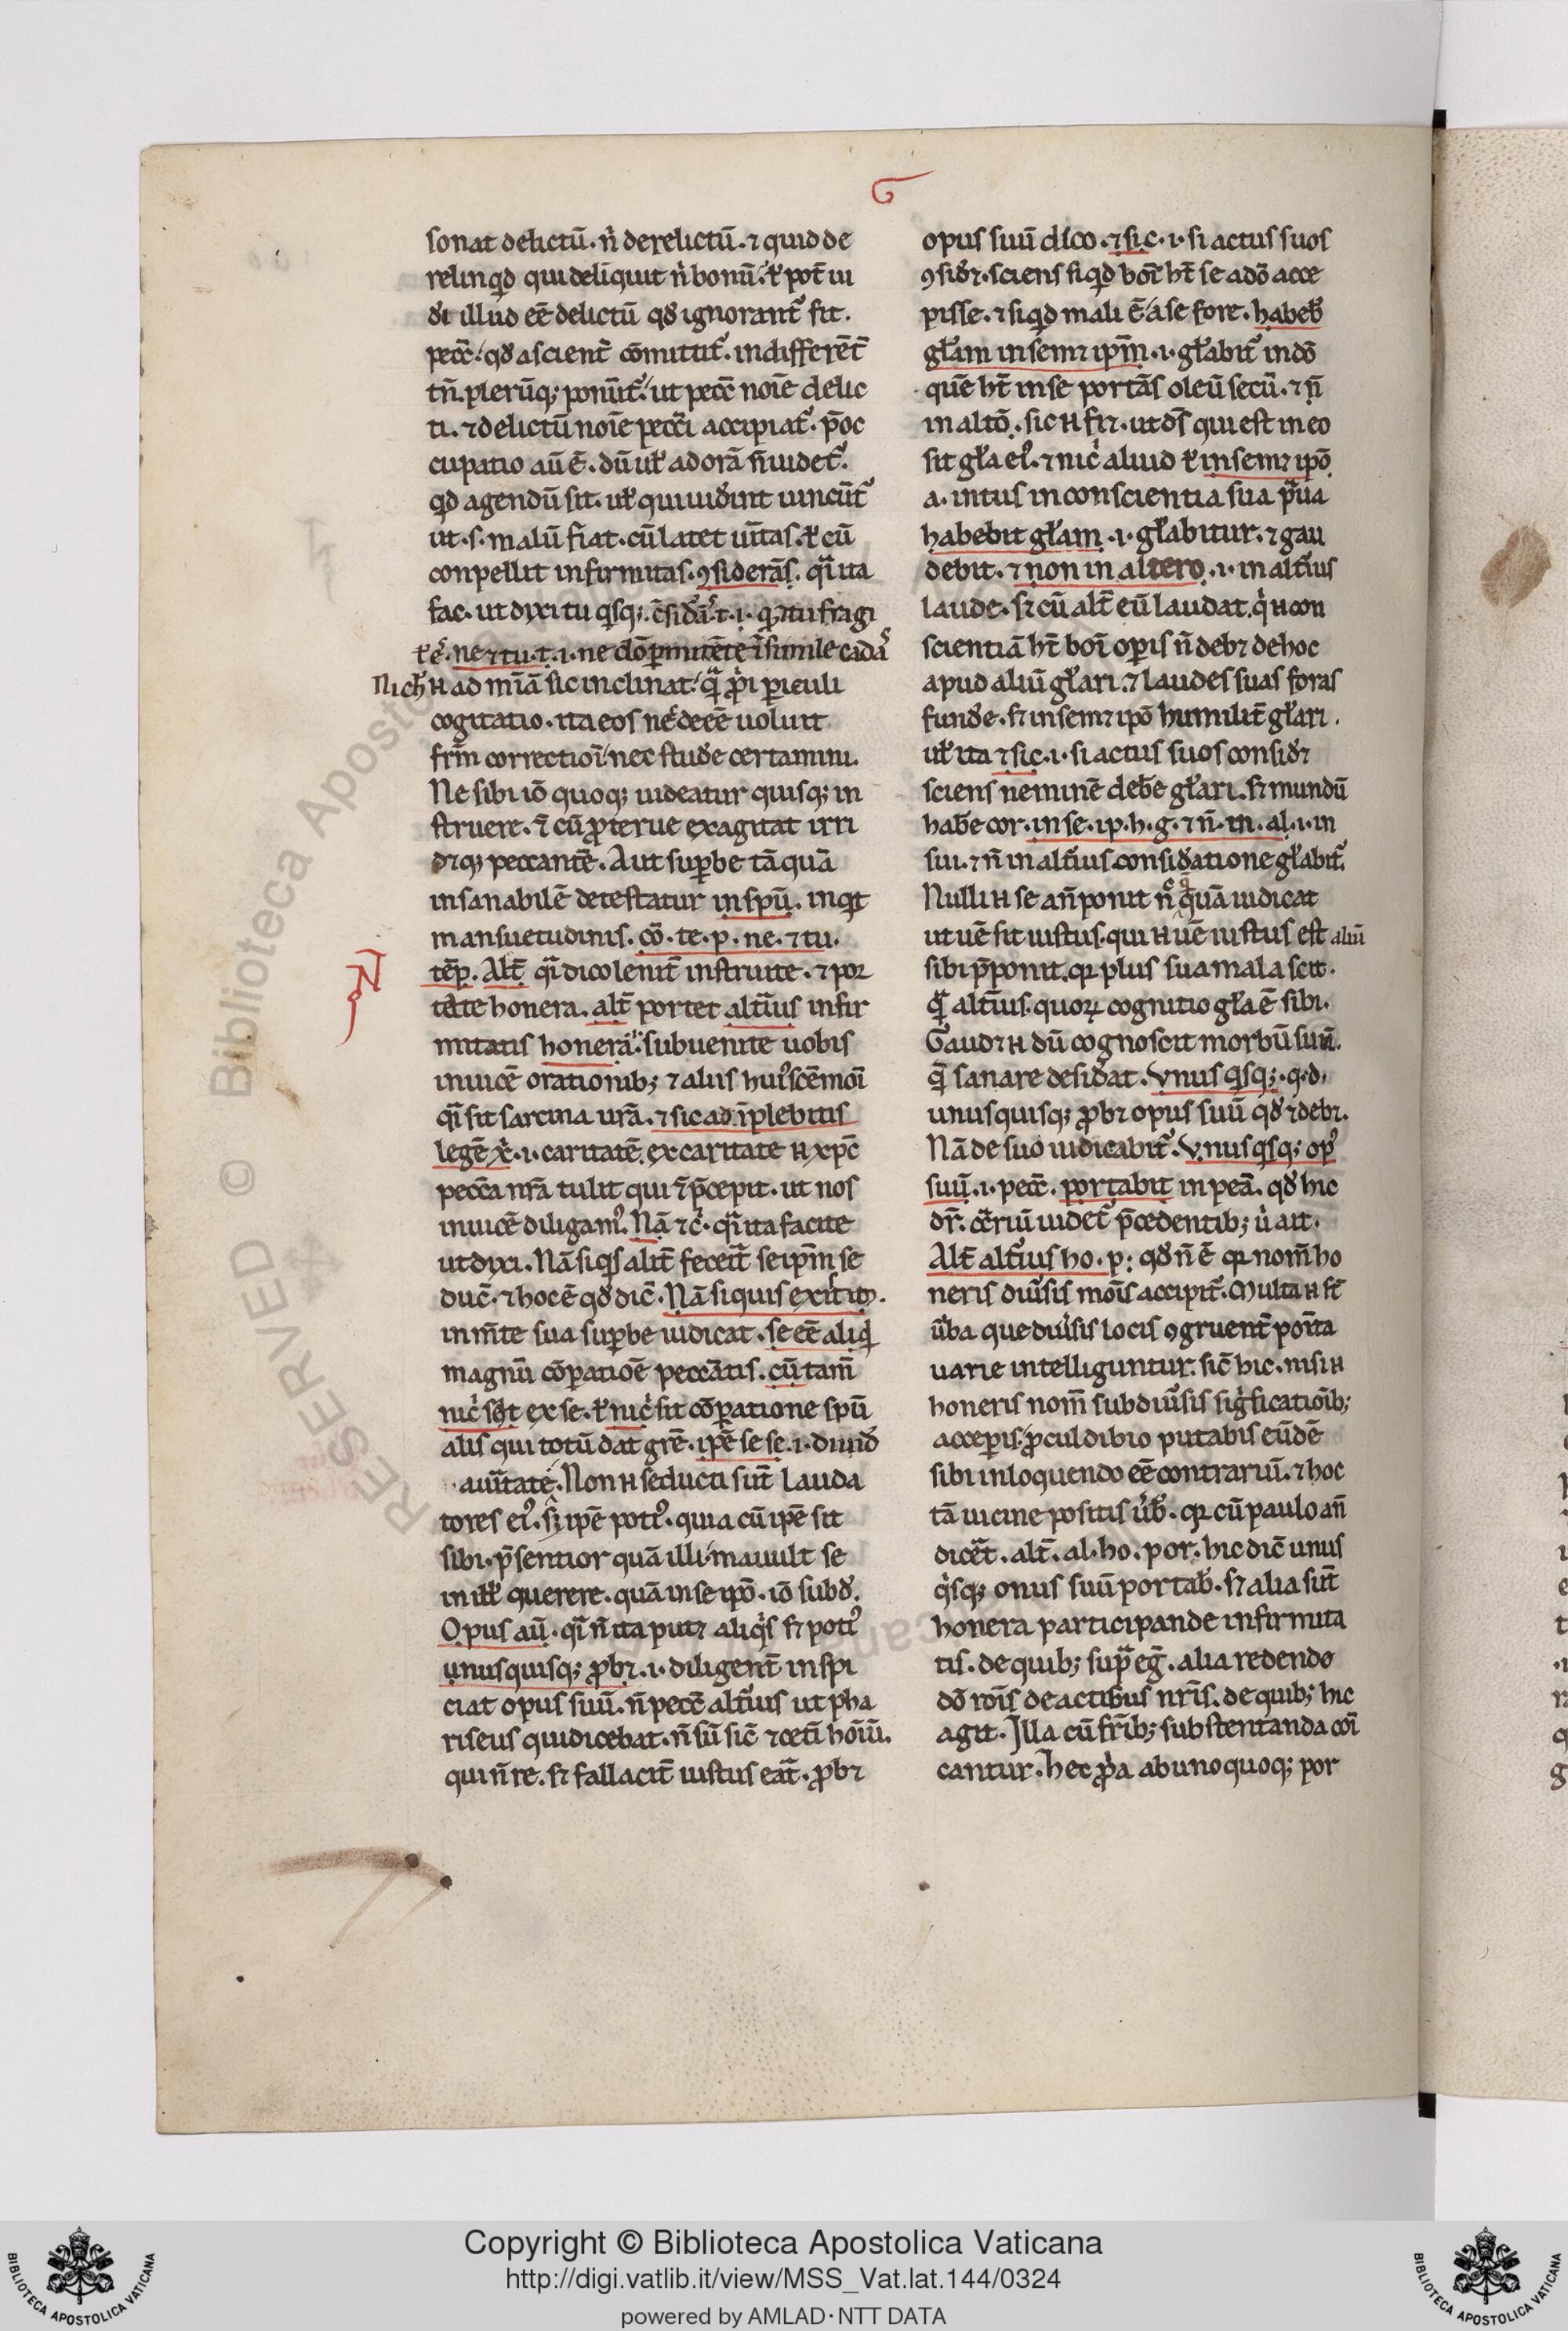 sonat delictū. n̄ derelictū. ⁊ quid de
relinqͥd qui deliquit n̄ bonū. ł pot̄ ui
illud eē delictū qđ ignorant̾ fit.
pecc̄. qđ a scient̄ cōmittit̾. indifferēt̄
tn̄. plerūq; ponūt̾. ut pecc̄ noīe delic
ti. ⁊ delictū noīe pecc̄i accipiat̾. p̄oc
cupatio aū ē. dū uł ad orā n̄ uidet̾.
qͥd agendū sit. uł qui uid̾int uincūt̾
ut .s. malū fiat. cū latet ūitas. ł cū
conpellit infirmitas. ꝯsiderās. qͣ ita
fac. ut dixi tu qͥsq;. t. i. q tu fragi
ł ē. ne ⁊ tu. t. i. ne dō pmittēte ī simile cada
Nich̄ n̄ ad mīā sic inclinat. qͣ pͥpͥ piculi
cogitatio. ita eos n̄ deeē uoluit
frm̄ correctioī. nec stude certamini.
Ne sibi iō quoq; uideatur quisq; in
struere. ⁊ cū ꝓterue exagitat irri
det q; peccantē. Aut supbe tā quā
insanabilē detestatur in spū. inqͥt
mansuetudinis. cō. te. p. ne. ⁊ tu.
tēp. Alt̄ qͣ dico lenit̄ instruite. ⁊ por
tate honera. alt̄ portet alt̄ius infir
mitatis honera. subuenite uobis
inuicē orationib; ⁊ aliis hui̾scēmoī
qͣ sit sarcina urā. ⁊ sic ad īplebitis
legē x̄ .i. caritatē. ex caritate n̄ xp̄c
pecc̄a nr̄a tulit qui ⁊ p̄cepit. ut nos
inuicē diligam̾. Nā ⁊c̄. qͣ ita facite
ut dixi. Nā siqͥs alit̄ fecerit̄ se ipm̄ se
duc̄. ⁊ hoc ē qđ dic̄. Nā si quis exītit.
in m̄te sua supbe iudicat. se eē aliqͥd
magnū cōpatiōē peccātis. cū tam̄
nic̄ sit ex se. ł nic̄ sit cōpatione spū
alis qui totū dat grē. ipē se se .i. diuid̾
a ūitate. Non n̄ seducti sūt lauda
tores ei̾. s̄ ipē poti̾. quia cū ipē sit
sibi p̄sentior quā illi. mauult se
in illł querere. quā in se ipō. iō subđ.
Opus aū. qͣ n̄ ita put⁊ aliqͥs s⁊ poti̾
unusquisq; ꝓb⁊ .i. diligent̄ inspi
ciat opus suū. n̄ pecc̄ alt̄ius ut pha
riseus qui dicebat. n̄ sū sic̄ ⁊ cet̄i hoīū.
qui n̄ re. s⁊ fallacit̄ iustus eat̄. ꝓb⁊
opus suū dico. ⁊ sic .i. si actus suos
ꝯsid̾⁊. sciens siqͥd boī ht̄ se a dō acce
pisse. ⁊ siqͥd mali ē a se fore. habeb̄
głam in sem⁊ ipm̄ .i. głabit̾ in dō
quē ht̄ in se portās oleū secū. ⁊ n̄
in altō. sic n̄ fi⁊. ut dō qui est in eo
sit gła ei̾. ⁊ nic̄ aliud ł in sem⁊ ipō
a. intus in conscientia sua pͣua
habebit głam .i. głabitur. ⁊ gau
debit. ⁊ non in altero .i. in alt̄ius
laude. s⁊ cū alt̄ eū laudat. qͥ n̄ con
scientiā ht̄ boī opis n̄ deb⁊ de hoc
apud aliū głari. ⁊ laudes suas foras
funde. s⁊ in sem⁊ ipō humilit̄ głari.
uł ita ⁊ sic .i. si actus suos consid̾⁊
sciens neminē debe głari. s⁊ mundū
habe cor. in se. ip. h. g. ⁊ n̄. in. al .i. in
sui. ⁊ n̄ in alt̄ius consid̾atione głabit̾.
Nulli n̄ se an̄ponit n̄ quā iudicat
ut uē sit iustus. qui n̄ uē iustus est aliū
sibi p̄ponit. qꝛ plus sua mala scit.
qͣ alt̄ius. quoꝝ cognitio gła ē sibi.
Gaud⁊ n̄ dū cognoscit morbū suū.
qͣ sanare desid̾at. Vnus qͥsq; .q.d.
unusquisq; ꝓb⁊ opus suū qđ ⁊ deb⁊.
Nā de suo iudicabit̾. Vnus qͥsq; op̾
suū .i. pecc̄. portabit in peā. qđ hic
dr̄. cͦtrͣriū uidet̾ p̄cedentib; u̇ ait.
Alt̄ alt̄ius ho. p: qđ n̄ ē qꝛ nom̄ ho
neris diūsis mōis accipit̾. Multa n̄ st̄
ūba que diūsis locis ꝯgruent̄ poīta
uarie intelliguntur. sic̄ hic. nisi n̄
honeris nom̄ sub diūsis sigͥficatioīb;
accepis. ꝓcul dibio putabis eūdē
sibi in loquendo eē contrariū. ⁊ hoc
tā uicine positis ūb̄. qꝛ cū paulo an̄
dicēt. alt̄. al. ho. por. hic dic̄ unus
qͥsq; onus suū portab̄. s⁊ alia sūt
honera participande infirmita
tis. de quib; supͣ eg̾. alia redendo
dō rōis de actibus nr̄is. de quib; hic
agit. Illa cū fr̄ib; substentanda cōi
cantur. hec ꝓpͥa ab uno quoq; por
Copyright © Biblioteca Apostolica Vaticana
http://digi.vatlib.it/view/MSS_Vat.lat.144/0324
powered by AMLAD·NTT DATA
BIBLIOTECA APOSTOLICA VATICANA
BIBLIOTECA APOSTOLICA VATICANA